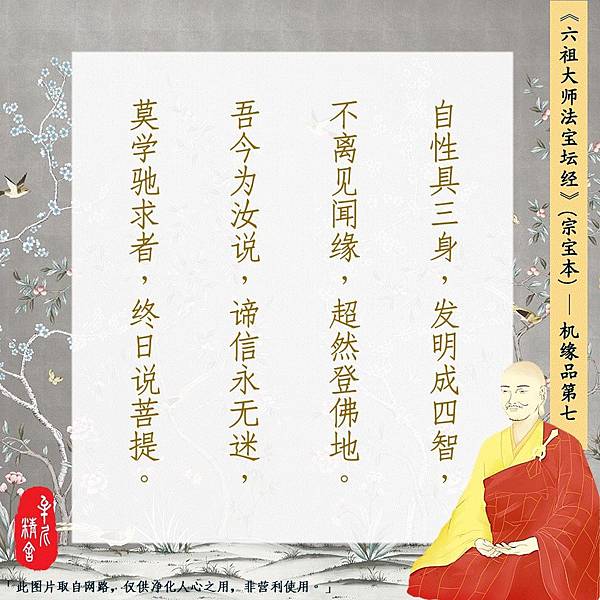 《六祖大师法宝坛经》(宗宝本)— 机缘品第七
自性具三身，发明成四智，
不离见闻缘，超然登佛地。
吾今为汝说，谛信永无迷，
莫学驰求者，终日说菩提。
精舍
「此图片取自网路，仅供净化人心之用，非营利使用。」